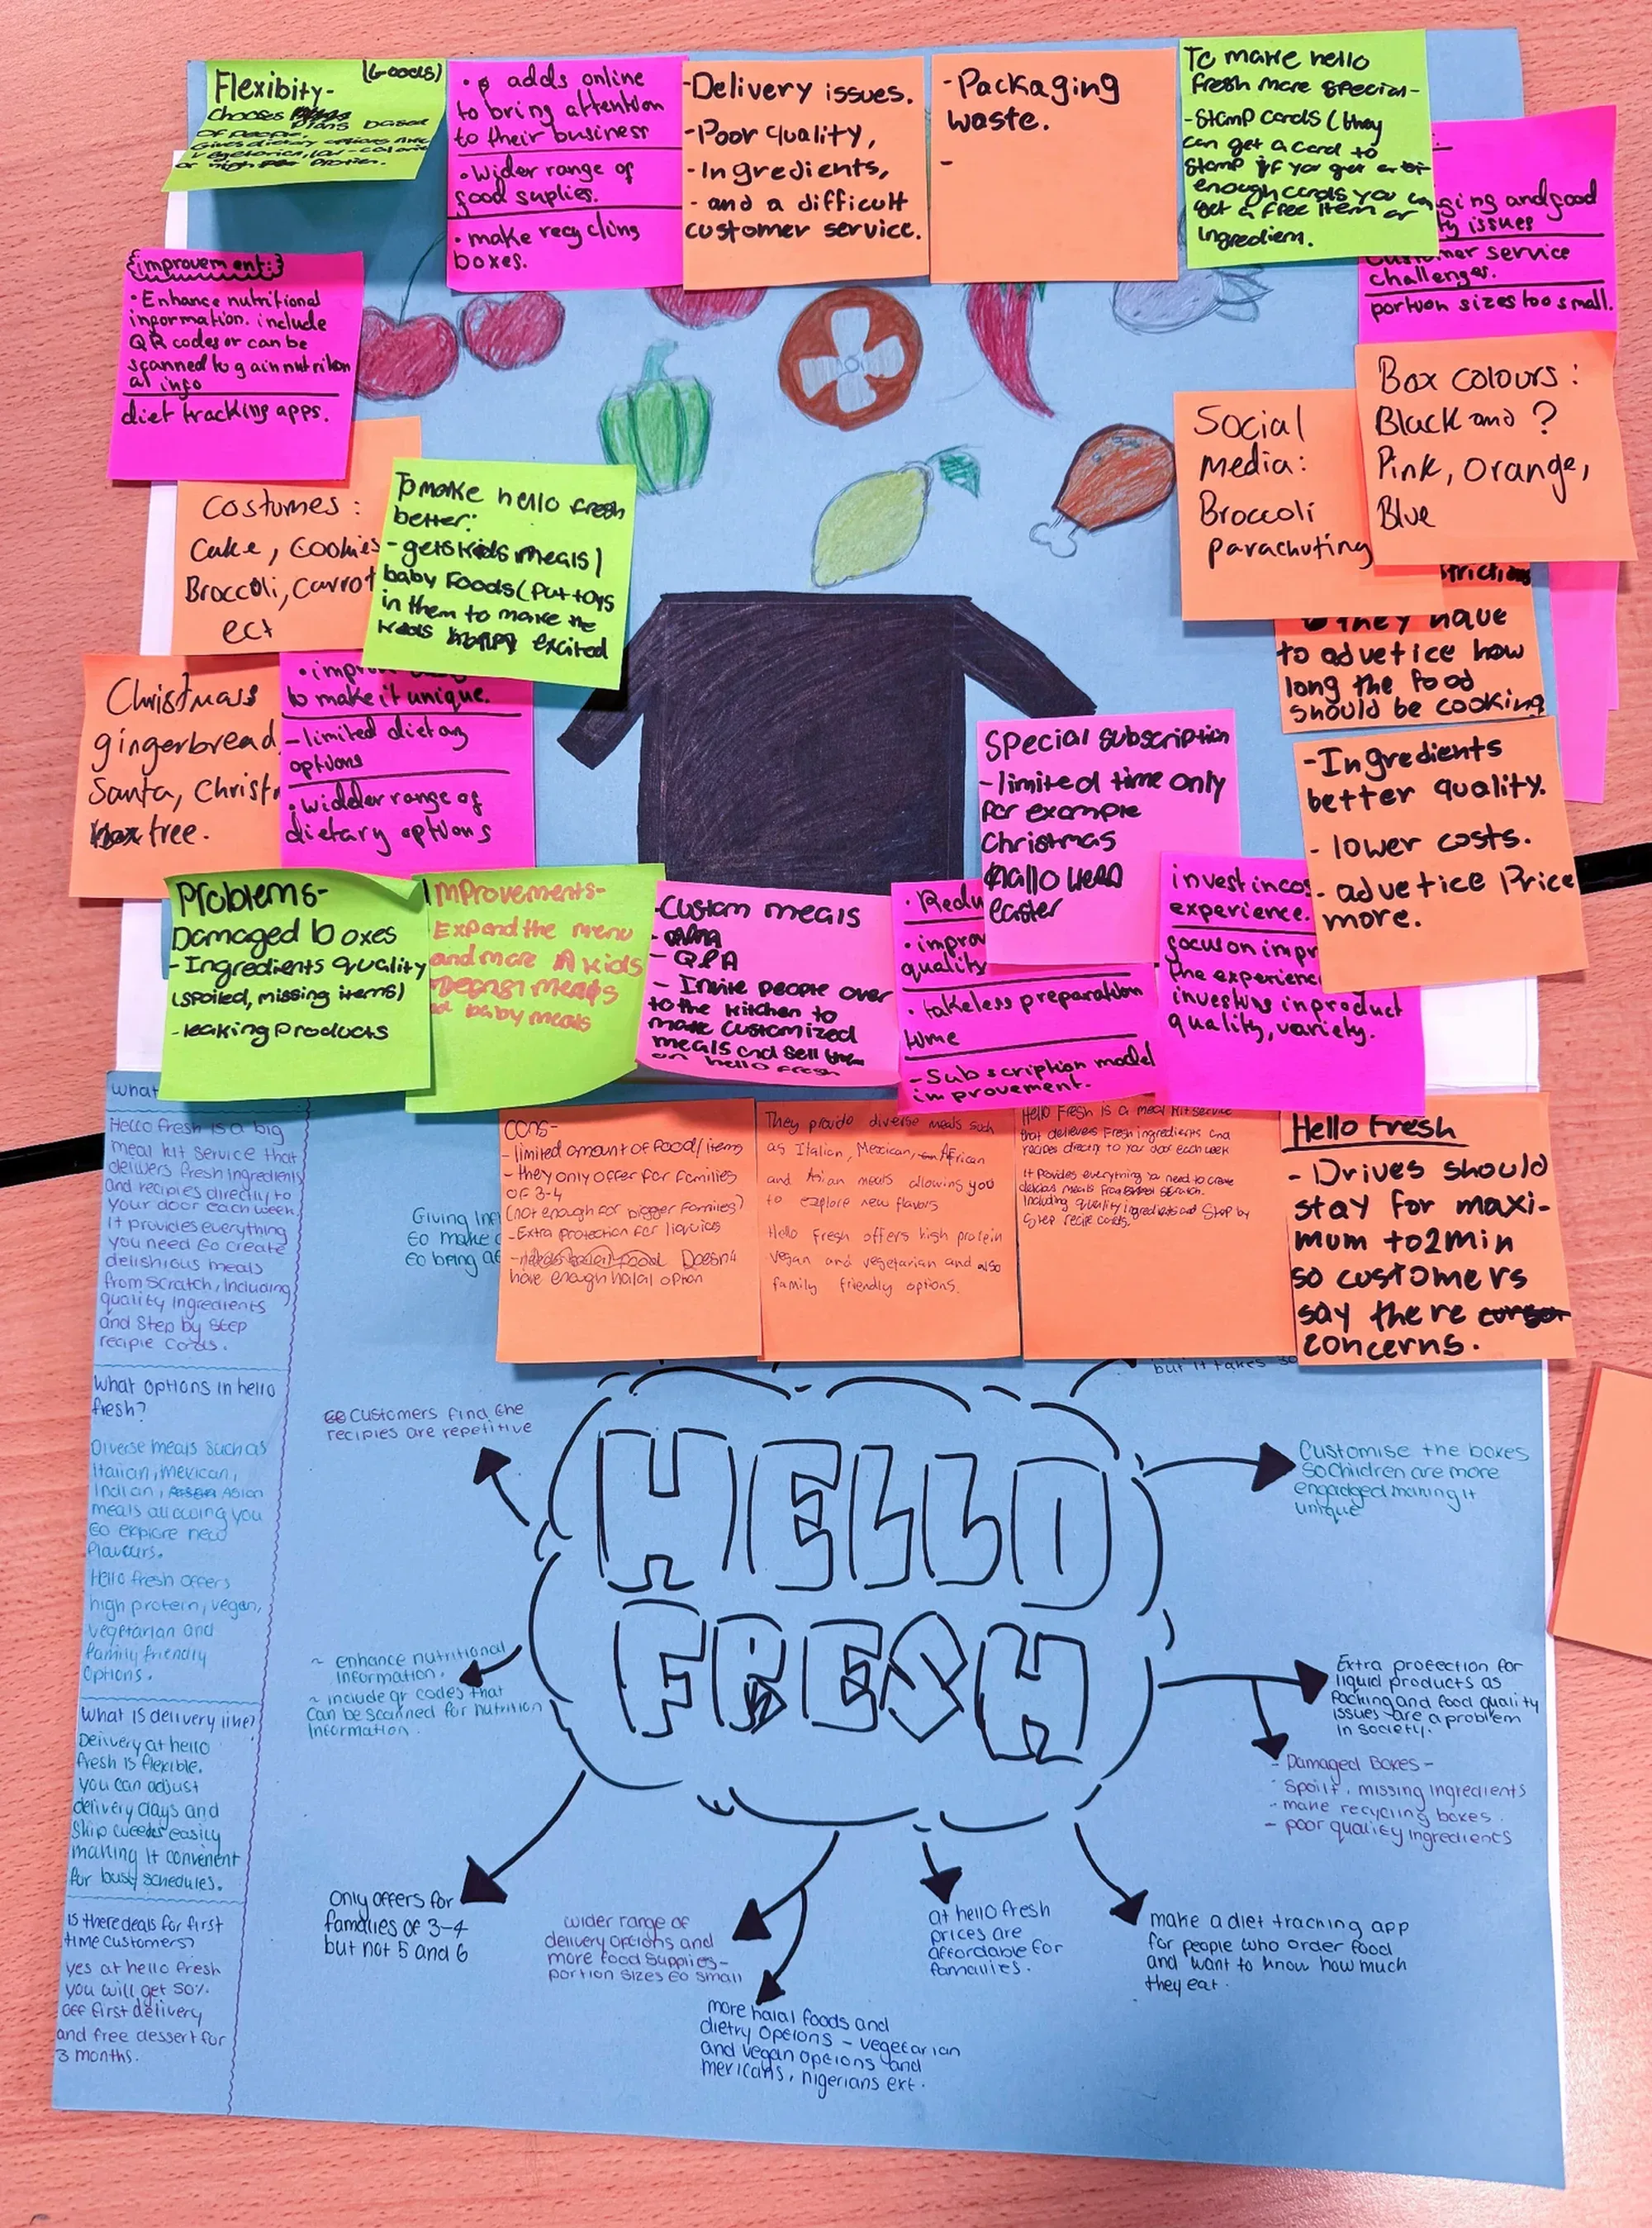 Flexibity-
(Goods)
Chooses
Plans based
of people.
Gives dietary options
or high protien.
adds online
to bring attention
to their business
• Wider range of
food suplies.
• make recycling
boxes.
-Delivery issues.
-Poor quality,
-Ingredients,
- and a difficult
customer service.
-Packaging
waste.
-
To make hello
Fresh more special-
-Stamp cards (they
can get a card to
Stamp if you get
enough cards you can
get a free item or
Ingredient.
ging and good
ty issues
mer service
challenges.
portion sizes too small.
improvement:
• Enhance nutritional
information. include
QR codes or can be
scanned to gain nutrition
al info
diet tracking apps.
Costumes:
Cake, Cookies
Broccoli, Carrot
ect
To make hello fresh
better:
- gets kids meals /
baby Foods (Put toys
in them to make the
excited
Social
media:
Broccoli
parachuting
Box colours:
Black and ?
Pink, Orange,
Blue
they have
to advetice how
long the food
should be cooking
Christmas
gingerbread
Santa, Christ
tree.
to make it unique.
-limited dietary
options
• widder range of
dietary options
Special subscription
-limited time only
For example
Christmas
Hallo ween
easter
-Ingredients
better quality.
- lower costs.
- advetice Price
more.
Problems-
Damaged boxes
- Ingredients quality
(spoiled, missing items)
-leaking Products
Improvements-
Expand the menu
and more kids
meals
baby meals
-Custom meals
- Q&A
- Invite people over
to the kitchen to
make customized
meals and sell them
on hello fresh
• Redu
• improv
quality
• take less preparation
time
-Subscription model
improvement.
invest in cos
experience.
focus on impr
the experience
investing in product
quality, variety.
what
Hello fresh is a big
meal kit service that
delivers fresh ingredients
and recipies directly to
your door each week.
It provides everything
you need to create
delishious meals
from scratch, Including
quality Ingredients
and Step by Step
recipie cards.
What options in hello
fresh?
Diverse meals such as
Italian, Mexican,
Indian, Asian
meals allowing you
to explore new
flavours.
Hello fresh offers
high protein, vegan,
vegetarian and
family friendly
options.
what is delivery like?
Delivery at hello
fresh is flexible.
you can adjust
delivery days and
Skip weeks easily
making it convenient
for busy schedules.
Is there deals for first
time customers?
yes at hello fresh
you will get 50%
off first delivery
and free dessert for
3 months.
Giving Inf
to make
to being
cons-
- limited amount of food/items
- they only offer for families
of 3-4
(not enough for bigger families)
-Extra protection for liquids
Doesn't
have enough halal option
They provido diverse meals such
as Italian, Mexican, African
and Asian meals allowing you
to explore new flavors
Hello Fresh offers high protein
vegan and vegetarian and also
family friendly options.
Hello Fresh is a meal kit service
that delievers Fresh ingredients and
recipes directly to your door each week
It Provides everything you need to create
delicious meals from scratch.
Including quality ingredients and Step by
Step recipe cards.
Hello Fresh
- Drives should
stay for maxi-
mum to 2min
so customers
say there
concerns.
but it takes
customers find the
recipies are repetitive
HELLO
FRESH
Customise the boxes
So Children are more
engadged making it
unique
~ enhance nutritional
Information.
~ include qr codes that
can be scanned for nutrition
Information.
Extra protection for
liquid products as
Packing and food quality
issues are a problem
in society.
- Damaged Boxes -
- Spoilt, missing ingredients
- make recycling boxes.
- poor quality ingredients
Only offers for
families of 3-4
but not 5 and 6
wider range of
delivery options and
more food supplies-
portion sizes to small
more halal foods and
dietry options - vegetarian
and vegan options and
mexicans, nigerians ext.
at hello fresh
prices are
affordable for
famailies.
make a diet tracking app
for people who order food
and want to know how much
they eat.